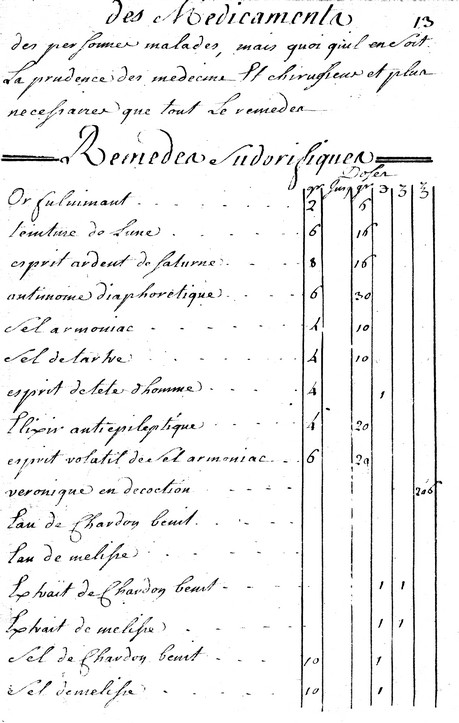 des Medicaments 13
des personnes malades, mais quoi qiul en Soit
La prudence des medecins Et chirugiens et plus
necessaires que tout Le remedes
Remedes Sudorifiques
Doses
gr Jusq gr ʒ ʒ ℥
Or fulminant 2 6
teinture de Lune 6 16
esprit ardent de Saturne 8 16
antimoine diaphoretique 6 30
Sel armoniac 4 10
Sel de tartre 4 10
esprit de tete d'homme 4 1
Elixir antiepileptique 4 20
esprit volatil de Sel armoniac 6 20
veronique en decoction
Eau de Chardon benit
Eau de melisse
Extrait de Chardon benit 1 1
Extrait de melisse 1 1
Sel de Chardon benit 10 1
Sel de melisse 10 1